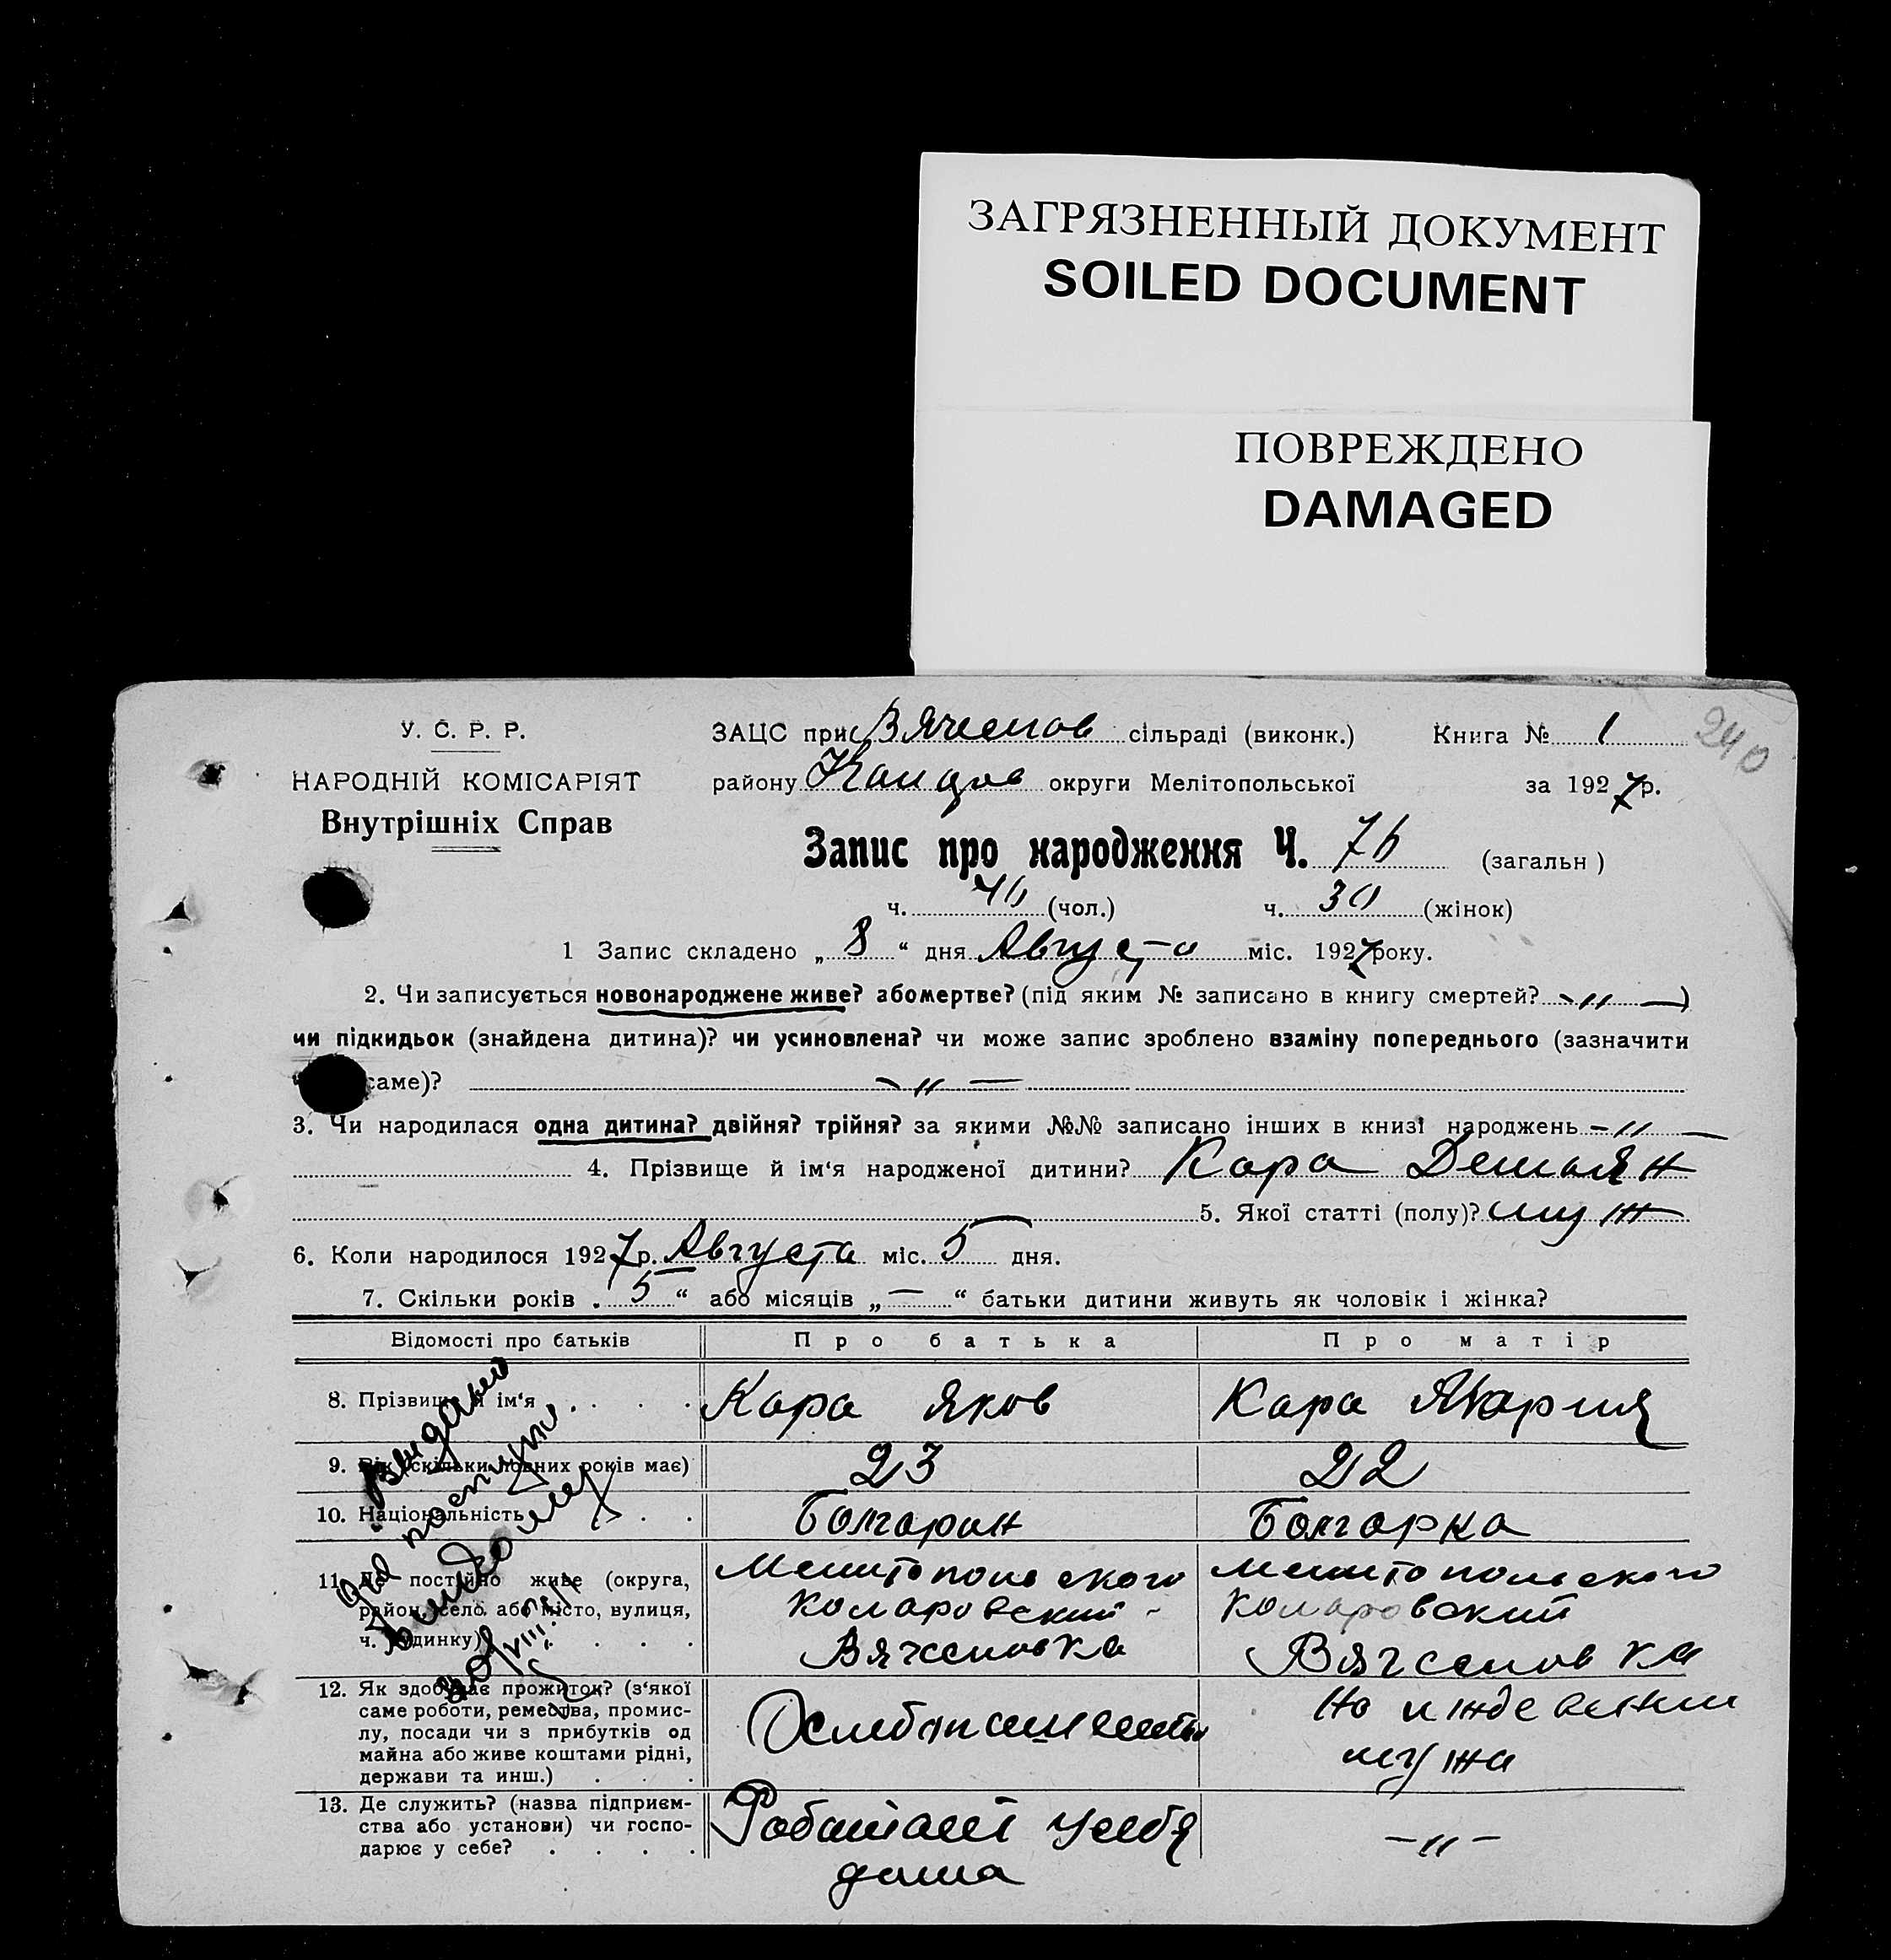 ЗАГРЯЗНЕННЫЙ ДОКУМЕНТ
SOILED DOCUMENT
ПОВРЕЖДЕНО
DAMAGED
240
У. С. Р. Р.
НАРОДНІЙ КОМІСАРІЯТ
Внутрішніх Справ
ЗАЦС при Вячеслов сільраді (виконк.) Книга № 1
району округи Мелітопольської за 1927 р.
Запис про народження Ч. 76 (загальн )
ч. 46 (чол.) ч. 30 (жінок)
1 Запис складено „ 8 “ дня Августа міс. 1927 року.
2. Чи записується новонароджене живе? або мертве? (під яким № записано в книгу смертей? -„- )
чи підкидьок (знайдена дитина)? чи усиновлена? чи може запис зроблено взаміну попереднього (зазначити
саме)? -„-
3. Чи народилася одна дитина? двійня? трійня? за якими №№ записано інших в книзі народжень -„-
4. Прізвище й ім‘я народженої дитини? Кара Демьян
5. Якої статті (полу)? муж
6. Коли народилося 1927 р. Августа міс. 5 дня.
7. Скільки років „ 5 “ або місяців „ — “ батьки дитини живуть як чоловік і жінка?
Відомості про батьків Про батька Про матір
8. Прізвище й ім‘я . . . . Кара Яков Кара Мария
9. Вік (скільки повних років має) 23 22
10. Національність . . . Болгарин Болгарка
11. Де постійно живе (округа,
район, село або місто, вулиця,
ч. будинку) . . . .
Мелитопольского
Коларовский
Вячесловка
Мелитопольского
Коларовский
Вячесловка
12. Як здобуває прожиток? (з‘якої
саме роботи, ремества, промис-
лу, посади чи з прибутків од
майна або живе коштами рідні,
держави та инш.) . . .
На иждевении
мужа
13. Де служить? (назва підприєм-
ства або установи) чи госпо-
дарює у себе? . . . .
Работает у себя
дома
-„-
Выдано